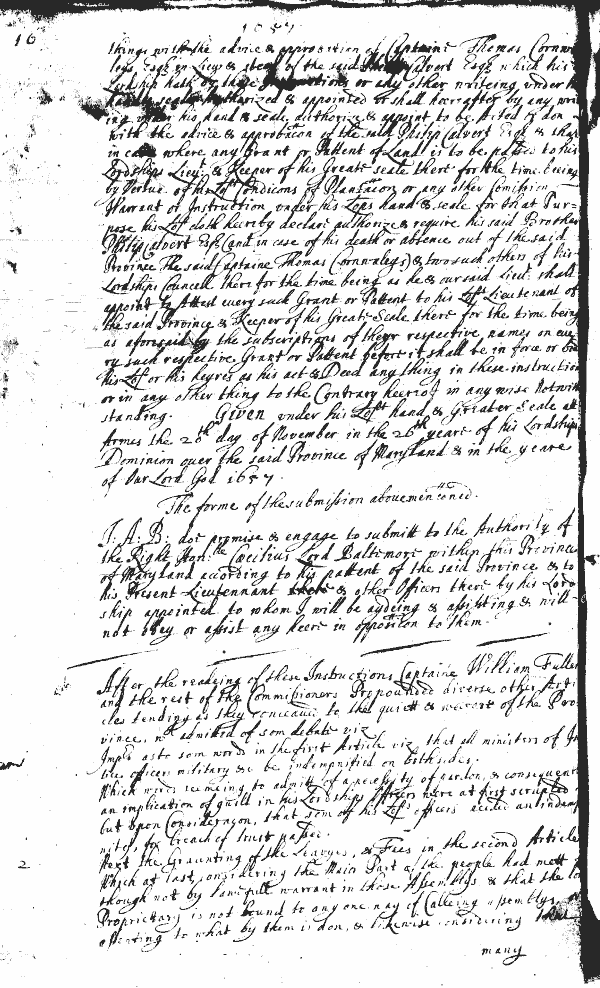 16
1657
things with the advice & approbation of Captaine Thomas Cornwa
leys Esqr in Lieu & stead of the said Calvert Esqr which his
Lordship hath or those Instructions or any other writeing under h
hand & seale authorized & appointed or shall hereafter by any wri
ing under his hand & seale authorize & appoint to be Acted or don
with the advice & approbacon of the said Philip Calvert Esqr & that
in case where any Grant or Pattent of Land is to be passed to his
Lordships Lieut & Keeper of his Greate seale there for the time being
by Vertue of his Lops Condicons of Plantacon or any other Comission
Warrant or Instruction under his Lops hand & seale for that Pur=
pose his Lop doth hereby declare authorize & require his said Brother
Philip Calvert Esqr (and in case of his death or absence out of the said
Province The said Captaine Thomas Cornwaleys) & two such others of his
Lordships Councell there for the time being as he & our said Lieut shall
appoint to Attest every such Grant or Pattent to his Lops Lieutenant of
the said Province & Keeper of his Greate Seale there for the time being
as aforesaid by the subscriptions of their respective names on eve
ry such respective Grant or Pattent before it shall be in force or bind
his Lop or his heyres as his act & Deed any thing in these instruction
or in any other thing to the Contrary hereof in any wise Notwith
standing. Given under his Lops hand & Greater Seale att
Armes the 20th day of November in the 26th yeare of his Lordships
Dominion over the said Province of Maryland & in the yeare
of Our Lord God 1657.
The forme of the submission abovementioned.
I. A. B: doe promise & engage to submitt to the Authority of
the Right Honble Cæcilius Lord Baltemore within this Province
of Maryland according to his pattent of the said Province & to
his Present Lieutennant & other Officers there by his Lord
ship appointed to whom I will be aydeing & assisting & will
not obey or assist any heere in opposicon to them.
After the reading of these Instructions Captaine William Fuller
and the rest of the Commissioners Propounded diverse other Arti
cles tending as they conceaved to the quiett & welfare of the Pro
vince, wch admitted of som debate viz
Impis as to som words in the first Article viz, that all ministers of Ju
the officers military &c be indempnified on both sides.
Which words seemeing to admitt of a necessity of pardon, & consequent
an implication of guilt in his Lordships Officers were at first scrupled
but upon Consideracon, that som of his Lops officers needed an indemp
nity, for breach of trust passed.
2
Next the Graunting of the Leavyes, & Fees in the second Article
Which at last considering the Maior Part of the people had mett
though not by lawfull warrant in those Assemblys & that the lo
Proprietary is not bound to any one way of Calleing Assemblys, or
assenting to what by them is don, & likewise considering that
many